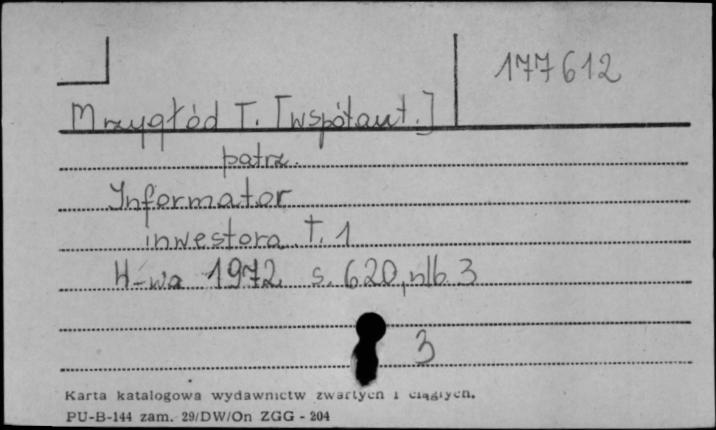 177612
Mrzygłód T. [współaut.]
patrz.
Informator
inwestora T. 1
W-wa 1972 s. 620, nlb 3
3
Karta katalogowa wydawnictw zwartych i ciągłych.
PU-B-144 zam. 29/DW/On ZGG - 204